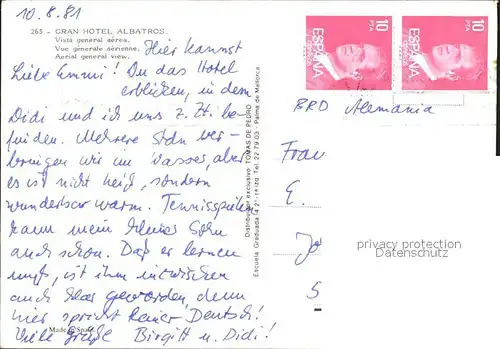 10.8.81
265 - GRAN HOTEL ALBATROS.
Vista general aérea.
Vue générale aérienne.
Aerial general view.
Hier kannst
Liebe Emmi! Du das Hotel
erblicken, in dem
Didi und ich uns z. Zt. be-
finden. Mehrere Stdn ver-
bringen wir im Wasser, aber
es ist nicht heiß, sondern
wunderbar warm. Tennisspielen
kann mein kleiner Sohn
auch schon. Daß er lernen
muß, ist ihm inzwischen
auch klar geworden, denn
hier spricht keiner Deutsch!
Viele Grüße Birgitt u. Didi!
Made in Spain
Distribuidor exclusivo: TOMAS DE PEDRO
Tel. 22 79 03 - Palma de Mallorca
10
PTA
ESPAÑA
10
PTA
ESPAÑA
BRD Alemania
Frau
E.
privacy protection
Datenschutz
5